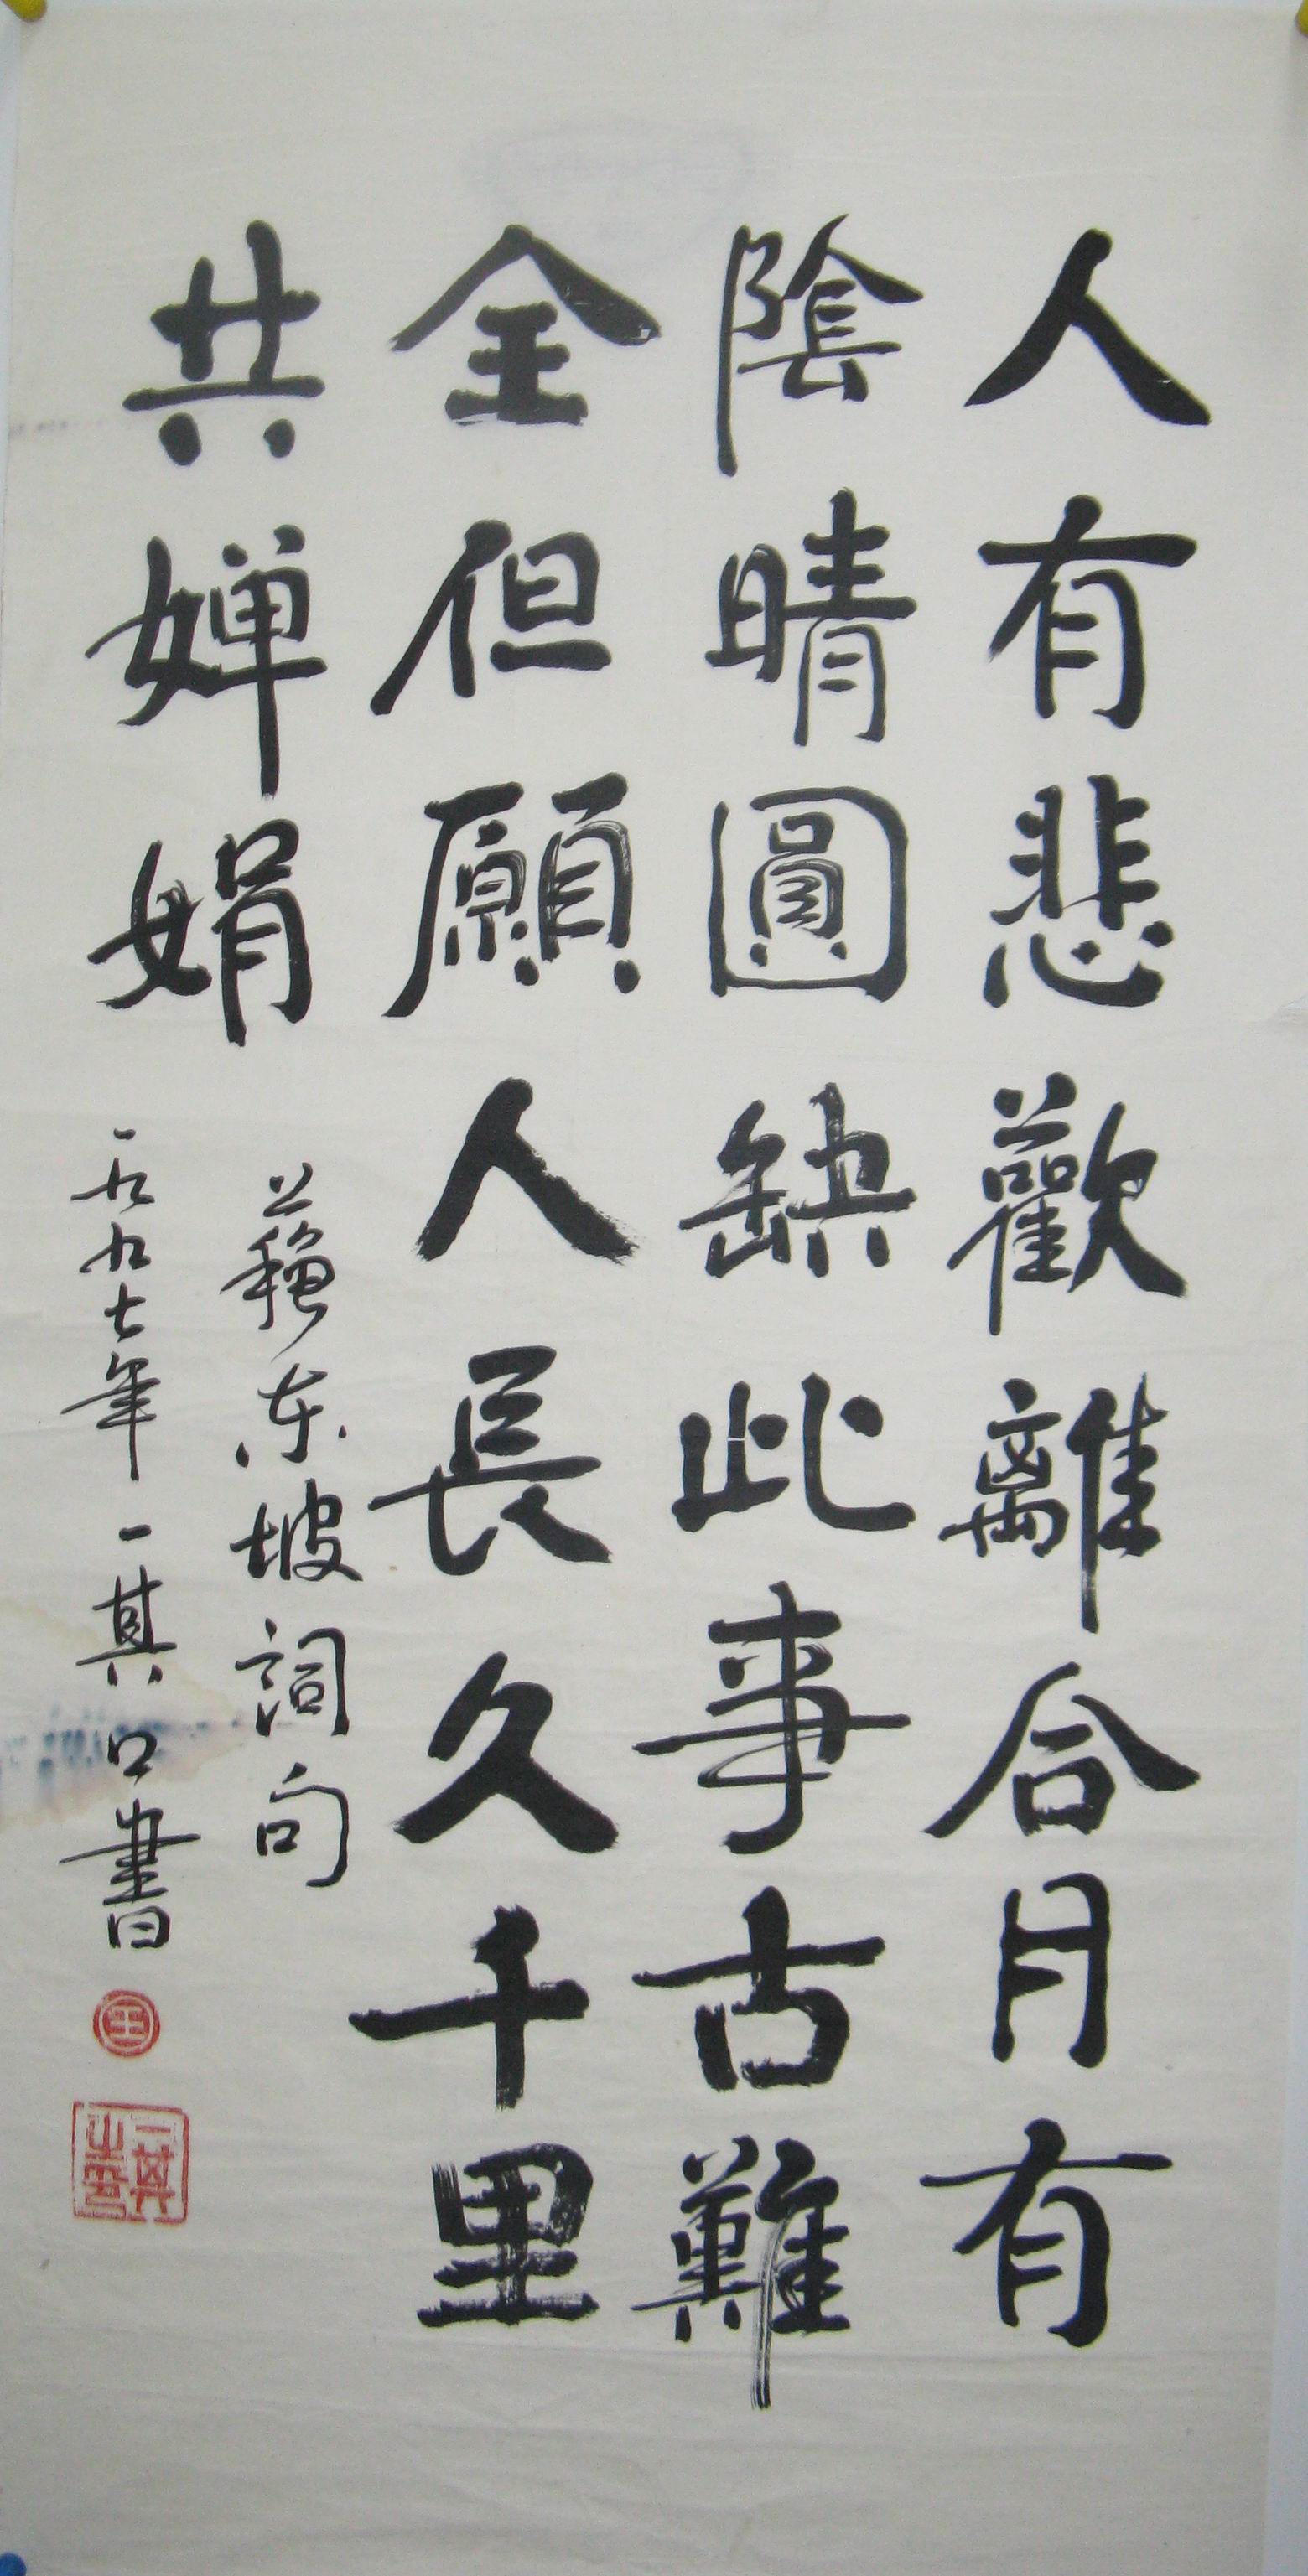 人有悲歡離合月有
陰晴圓缺此事古難
全但願人長久千里
共嬋娟
蘇東坡詞句
一九九七年一其口書
王